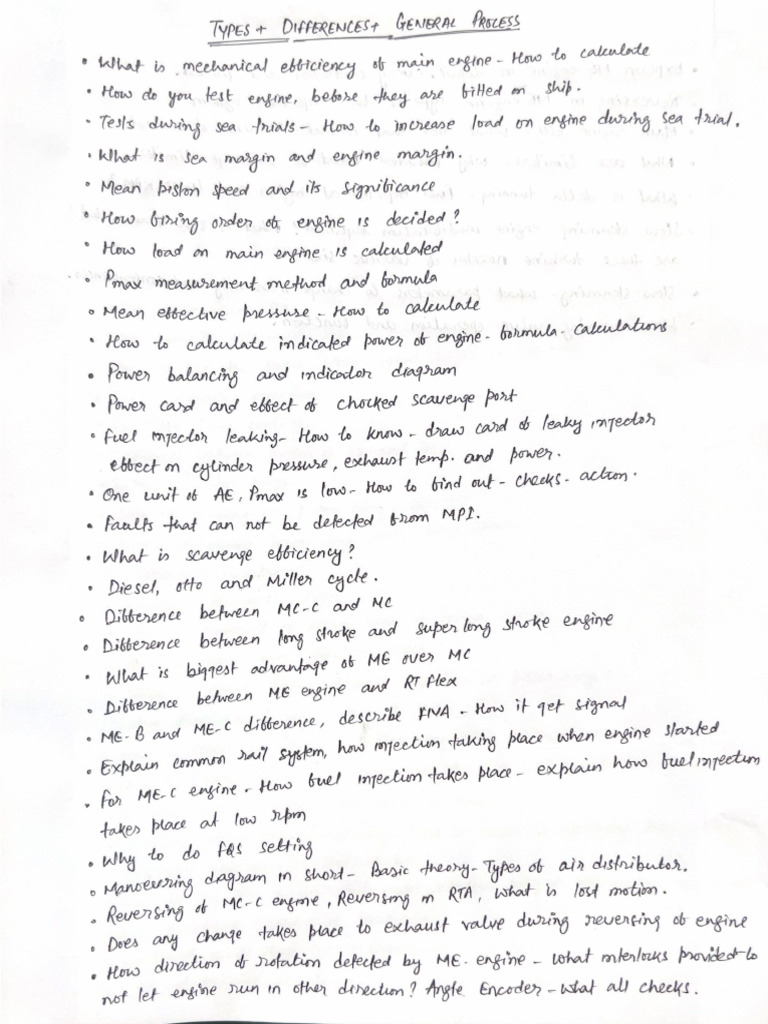 TYPES + DIFFERENCES + GENERAL PROCESS
• What is mechanical efficiency of main engine - How to calculate
• How do you test engine, before they are fitted on ship.
• Tests during sea trials - How to increase load on engine during sea trial.
• What is sea margin and engine margin.
• Mean piston speed and its significance
• How firing order of engine is decided?
• How load on main engine is calculated
• Pmax measurement method and formula
• Mean effective pressure - How to calculate
• How to calculate indicated power of engine - formula - calculations
• Power balancing and indicador diagram
• Power card and effect of chocked scavenge port
• Fuel injector leaking - How to know - draw card of leaky injector
effect on cylinder pressure, exhaust temp. and power.
• One unit of AE, Pmax is low - How to find out - checks - action.
• Faults that can not be detected from MPI.
• What is scavenge efficiency?
• Diesel, otto and Miller cycle.
• Difference between MC-C and MC
• Difference between long stroke and super long stroke engine
• What is biggest advantage of ME over MC
• Difference between ME engine and RT flex
• ME-B and ME-C difference, describe FIVA - How it get signal
• Explain common rail system, how injection taking place when engine started
• For ME-C engine - How fuel injection takes place - explain how fuel injection
takes place at low rpm
• Why to do FQS setting
• Manoeuring diagram in short - Basic theory - Types of air distributor.
• Reversing of MC-C engine, Reversing in RTA, what is lost motion.
• Does any change takes place to exhaust valve during reversing of engine
• How direction of rotation detected by ME engine - what interlocks provided to
not let engine run in other direction? Angle Encoder - what all checks.